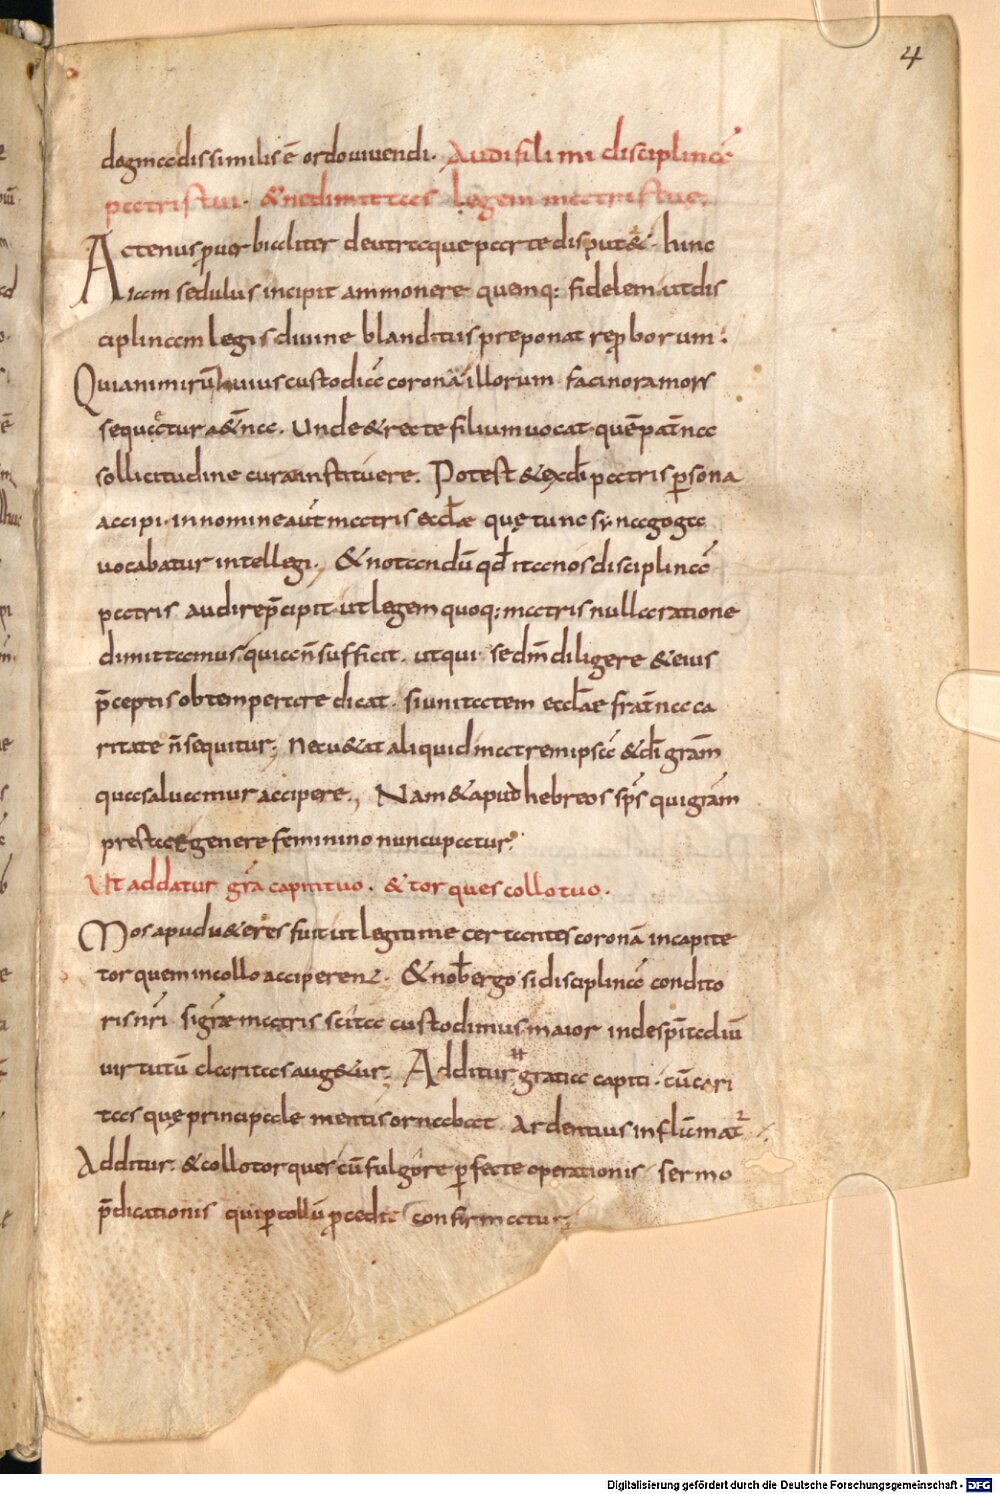 4
dogma dissimilis ē ordo vivendi. Audi fili mi disciplinā
patris tui. & ne dimittas legem matris tuę.
Actenus ꝓverbialiter de utraque parte disputat. hinc
iam sedulus incipit ammonere quemq; fidelem ut dis
ciplinam legis divine blanditiis preponat reproborum.
Quia nimirū huius custodiā corona illorum facinora mors
sequatur aet̄na. Unde & recte filium vocat quē pat̄na
sollicitudine curat instituere. Potest & ex dī patris ꝑsona
accipi. in nomine aūt matris ecclae quę tunc synagoga
vocabatur intellegi. & notandū qd̄ ita nos disciplinā
patris audire p̄cipit ut legem quoq; matris nulla ratione
dimittamus. quia n̄ sufficit. ut qui se dm̄ diligere & eius
p̄ceptis obtemperare dicat. si unitatem ecclae frat̄na ca
ritate n̄ sequitur. Ne cu&at aliquid matrem ipsā & dī gratiam
qua salvamur accipere. Nam & apud hebreos sp̄s qui gram
prestat genere feminino nuncupatur.
Ut addatur gra capiti tuo. & torques collo tuo.
Mos apud u&eres fuit ut legitime certantes coronā in capite
torquem in collo acciperent. & nob ergo si disciplinā condito
ris nr̄i si grae matris scita custodimus maior inde sp̄italiū
virtutū claritas aug&ur. Additur gratia capiti. cū cari
tas quę principale mentis ornabat. Ardentius inflāmat̃
Additur & collo torques cū fulgore ꝑfecte operationis sermo
p̄dicationis qui ꝑ collū ꝓcedit confirmatur.
Digitalisierung gefördert durch die Deutsche Forschungsgemeinschaft - DFG